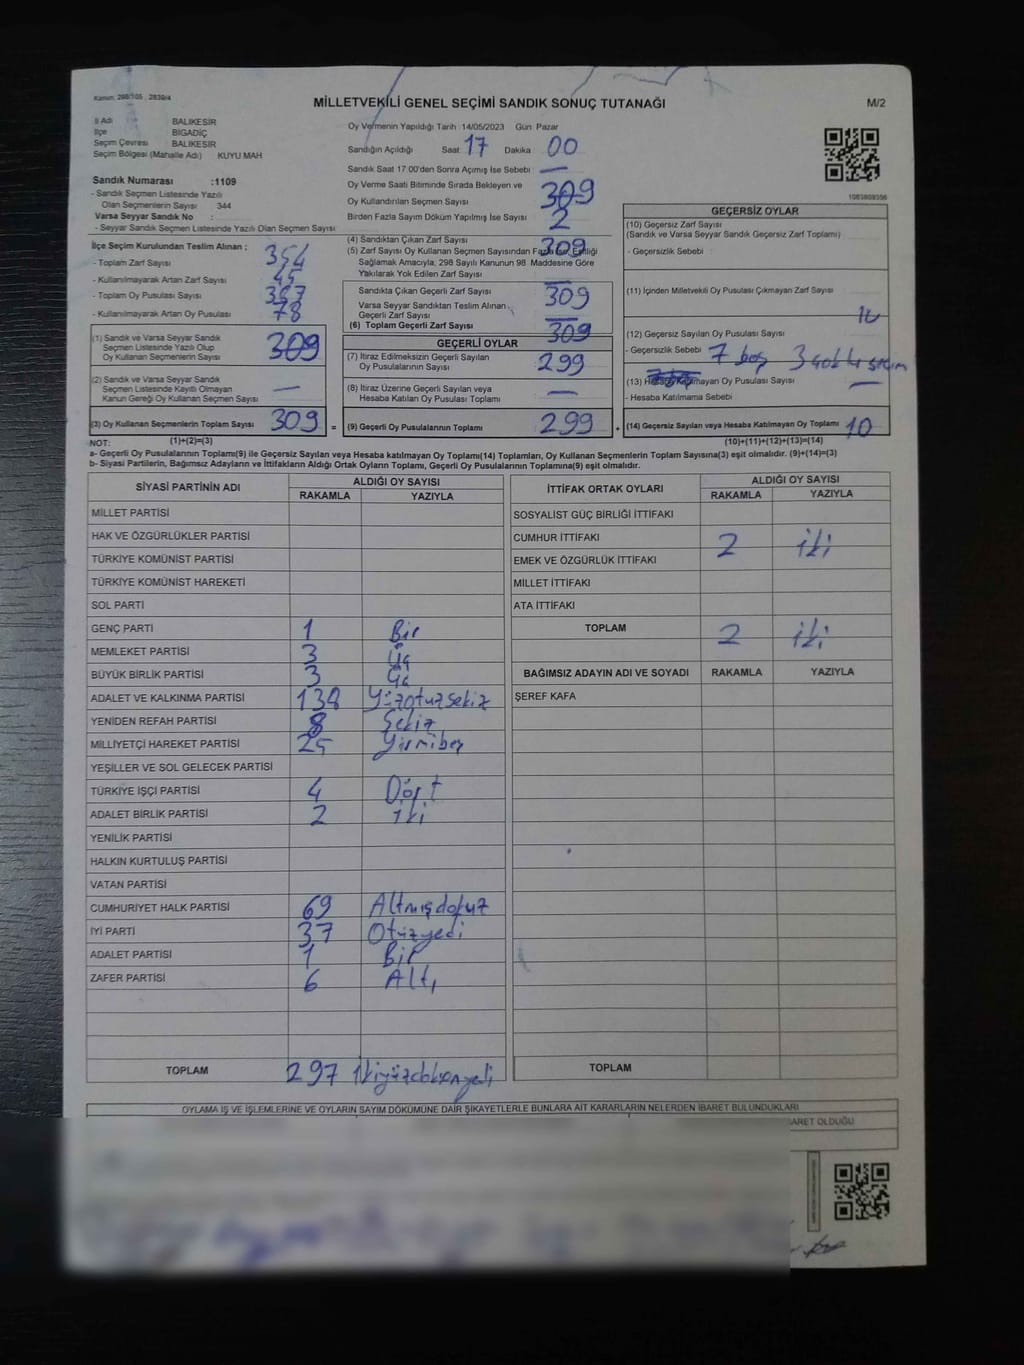 Kanun: 298/105 , 2839/4
MİLLETVEKİLİ GENEL SEÇİMİ SANDIK SONUÇ TUTANAĞI
M/2
İl Adı BALIKESİR
İlçe BİGADİÇ
Seçim Çevresi BALIKESİR
Seçim Bölgesi (Mahalle Adı) KUYU MAH
Sandık Numarası :1109
- Sandık Seçmen Listesinde Yazılı
Olan Seçmenlerin Sayısı 344
Varsa Seyyar Sandık No :
- Seyyar Sandık Seçmen Listesinde Yazılı Olan Seçmen Sayısı
Oy Vermenin Yapıldığı Tarih :14/05/2023 Gün: Pazar
Sandığın Açıldığı Saat: 17 Dakika 00
Sandık Saat 17.00'den Sonra Açmış İse Sebebi : —
Oy Verme Saati Bitiminde Sırada Bekleyen ve
Oy Kullandırılan Seçmen Sayısı 309
Birden Fazla Sayım Döküm Yapılmış İse Sayısı 2
1083809356
İlçe Seçim Kurulundan Teslim Alınan :
- Toplam Zarf Sayısı 354
- Kullanılmayarak Artan Zarf Sayısı 45
- Toplam Oy Pusulası Sayısı
- Kullanılmayarak Artan Oy Pusulası 78
(1) Sandık ve Varsa Seyyar Sandık
Seçmen Listesinde Yazılı Olup
Oy Kullanan Seçmenlerin Sayısı 309
(2) Sandık ve Varsa Seyyar Sandık
Seçmen Listesinde Kayıtlı Olmayan
Kanun Gereği Oy Kullanan Seçmen Sayısı —
(3) Oy Kullanan Seçmenlerin Toplam Sayısı 309 =
(4) Sandıktan Çıkan Zarf Sayısı 309
(5) Zarf Sayısı Oy Kullanan Seçmen Sayısından Fazla ise, Eşitliği
Sağlamak Amacıyla, 298 Sayılı Kanunun 98. Maddesine Göre
Yakılarak Yok Edilen Zarf Sayısı —
Sandıkta Çıkan Geçerli Zarf Sayısı 309
Varsa Seyyar Sandıktan Teslim Alınan
Geçerli Zarf Sayısı —
(6) Toplam Geçerli Zarf Sayısı 309
GEÇERLİ OYLAR
(7) İtiraz Edilmeksizin Geçerli Sayılan
Oy Pusulalarının Sayısı 299
(8) İtiraz Üzerine Geçerli Sayılan veya
Hesaba Katılan Oy Pusulası Toplamı —
(9) Geçerli Oy Pusulalarının Toplamı 299 +
GEÇERSİZ OYLAR
(10) Geçersiz Zarf Sayısı
(Sandık ve Varsa Seyyar Sandık Geçersiz Zarf Toplamı)
- Geçersizlik Sebebi :
(11) İçinden Milletvekili Oy Pusulası Çıkmayan Zarf Sayısı
(12) Geçersiz Sayılan Oy Pusulası Sayısı
- Geçersizlik Sebebi 7 boş 3
(13) Hesaba Katılmayan Oy Pusulası Sayısı —
- Hesaba Katılmama Sebebi
(14) Geçersiz Sayılan veya Hesaba Katılmayan Oy Toplamı 10
NOT: (1)+(2)=(3) (10)+(11)+(12)+(13)=(14)
a- Geçerli Oy Pusulalarının Toplamı(9) ile Geçersiz Sayılan veya Hesaba katılmayan Oy Toplamı(14) Toplamları, Oy Kullanan Seçmenlerin Toplam Sayısına(3) eşit olmalıdır. (9)+(14)=(3)
b- Siyasi Partilerin, Bağımsız Adayların ve İttifakların Aldığı Ortak Oyların Toplamı, Geçerli Oy Pusulalarının Toplamına(9) eşit olmalıdır.
SİYASİ PARTİNİN ADI ALDIĞI OY SAYISI
RAKAMLA YAZIYLA
MİLLET PARTİSİ
HAK VE ÖZGÜRLÜKLER PARTİSİ
TÜRKİYE KOMÜNİST PARTİSİ
TÜRKİYE KOMÜNİST HAREKETİ
SOL PARTİ
GENÇ PARTİ 1 Bir
MEMLEKET PARTİSİ 3 Üç
BÜYÜK BİRLİK PARTİSİ 3 Üç
ADALET VE KALKINMA PARTİSİ 138 Yüzotuzsekiz
YENİDEN REFAH PARTİSİ 8 Sekiz
MİLLİYETÇİ HAREKET PARTİSİ 25 Yirmibeş
YEŞİLLER VE SOL GELECEK PARTİSİ
TÜRKİYE İŞÇİ PARTİSİ 4 Dört
ADALET BİRLİK PARTİSİ 2 İki
YENİLİK PARTİSİ
HALKIN KURTULUŞ PARTİSİ
VATAN PARTİSİ
CUMHURİYET HALK PARTİSİ 69 Altmışdokuz
İYİ PARTİ 37 Otuzyedi
ADALET PARTİSİ 1 Bir
ZAFER PARTİSİ 6 Altı
TOPLAM 297 İkiyüzdoksanyedi
İTTİFAK ORTAK OYLARI ALDIĞI OY SAYISI
RAKAMLA YAZIYLA
SOSYALİST GÜÇ BİRLİĞİ İTTİFAKI
CUMHUR İTTİFAKI 2 iki
EMEK VE ÖZGÜRLÜK İTTİFAKI
MİLLET İTTİFAKI
ATA İTTİFAKI
TOPLAM 2 iki
BAĞIMSIZ ADAYIN ADI VE SOYADI RAKAMLA YAZIYLA
ŞEREF KAFA
TOPLAM
OYLAMA İŞ VE İŞLEMLERİNE VE OYLARIN SAYIM DÖKÜMÜNE DAİR ŞİKAYETLERLE BUNLARA AİT KARARLARIN NELERDEN İBARET BULUNDUKLARI
OLDUĞU